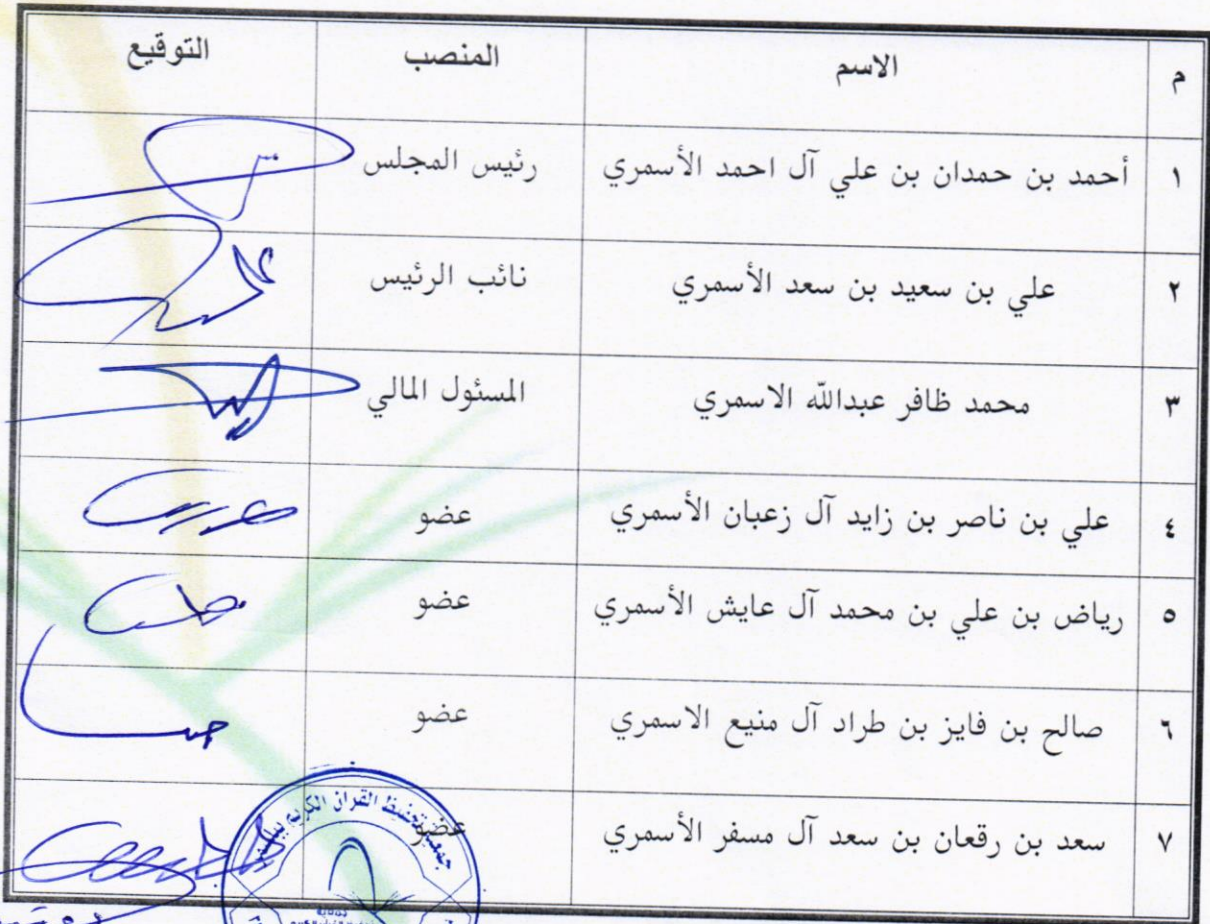 م الاسم المنصب التوقيع
١ أحمد بن حمدان بن علي آل احمد الأسمري رئيس المجلس
٢ علي بن سعيد بن سعد الأسمري نائب الرئيس
٣ محمد ظافر عبدالله الاسمري المسئول المالي
٤ علي بن ناصر بن زايد آل زعبان الأسمري عضو
٥ رياض بن علي بن محمد آل عايش الأسمري عضو
٦ صالح بن فايز بن طراد آل منيع الاسمري عضو
٧ سعد بن رقعان بن سعد آل مسفر الأسمري عضو
جمعية تحفيظ القران الكريم